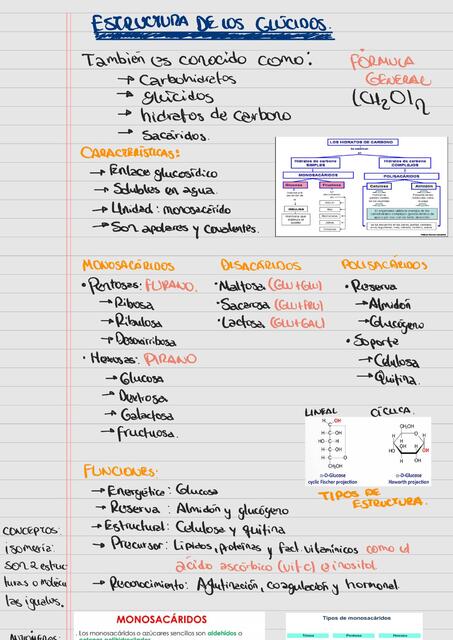 ESTRUCTURA DE LOS GLÚCIDOS.
También es conocido como:
→ Carbohidratos
→ glúcidos
→ hidratos de carbono
→ Sacáridos.
FÓRMULA
GENERAL
(CH₂O)n
CARACTERÍSTICAS:
→ Enlace glucosídico
→ Solubles en agua.
→ Unidad: monosacárido
→ Son apolares y covalentes.
LOS HIDRATOS DE CARBONO
Hidratos de carbono
SIMPLES
Hidratos de carbono
COMPLEJOS
MONOSACÁRIDOS
POLISACÁRIDOS
Glucosa
Fructosa
Celulosa
Almidón
INSULINA
MONOSACÁRIDOS
• Pentosas: FURANO.
→ Ribosa
→ Ribulosa
→ Desoxirribosa
• Hexosas: PIRANO
→ Glucosa
→ Dextrosa
→ Galactosa
→ Fructuosa.
DISACÁRIDOS
• Maltosa (GLU+GLU)
• Sacarosa (GLU+FRU)
• Lactosa (GLU+GAL)
POLISACÁRIDOS
• Reserva
→ Almidón
→ Glucógeno
• Soporte
→ Celulosa
→ Quitina.
LINEAL
CÍCLICA
D-Glucose
cyclic Fischer projection
D-Glucose
Haworth projection
TIPOS DE
ESTRUCTURA.
FUNCIONES:
→ Energética: Glucosa
→ Reserva: Almidón y glucógeno
→ Estructural: Celulosa y quitina
→ Precursor: Lípidos, proteínas y fact. vitamínicos como el
ácido ascórbico (vit c) e inositol
→ Reconocimiento: Aglutinación, coagulación y hormonal.
CONCEPTOS:
isomería:
son 2 estruc
turas o molécu
las iguales.
MONOSACÁRIDOS
Los monosacáridos o azúcares sencillos son aldehídos o
Tipos de monosacáridos
Triosas
Pentosas
Hexosas